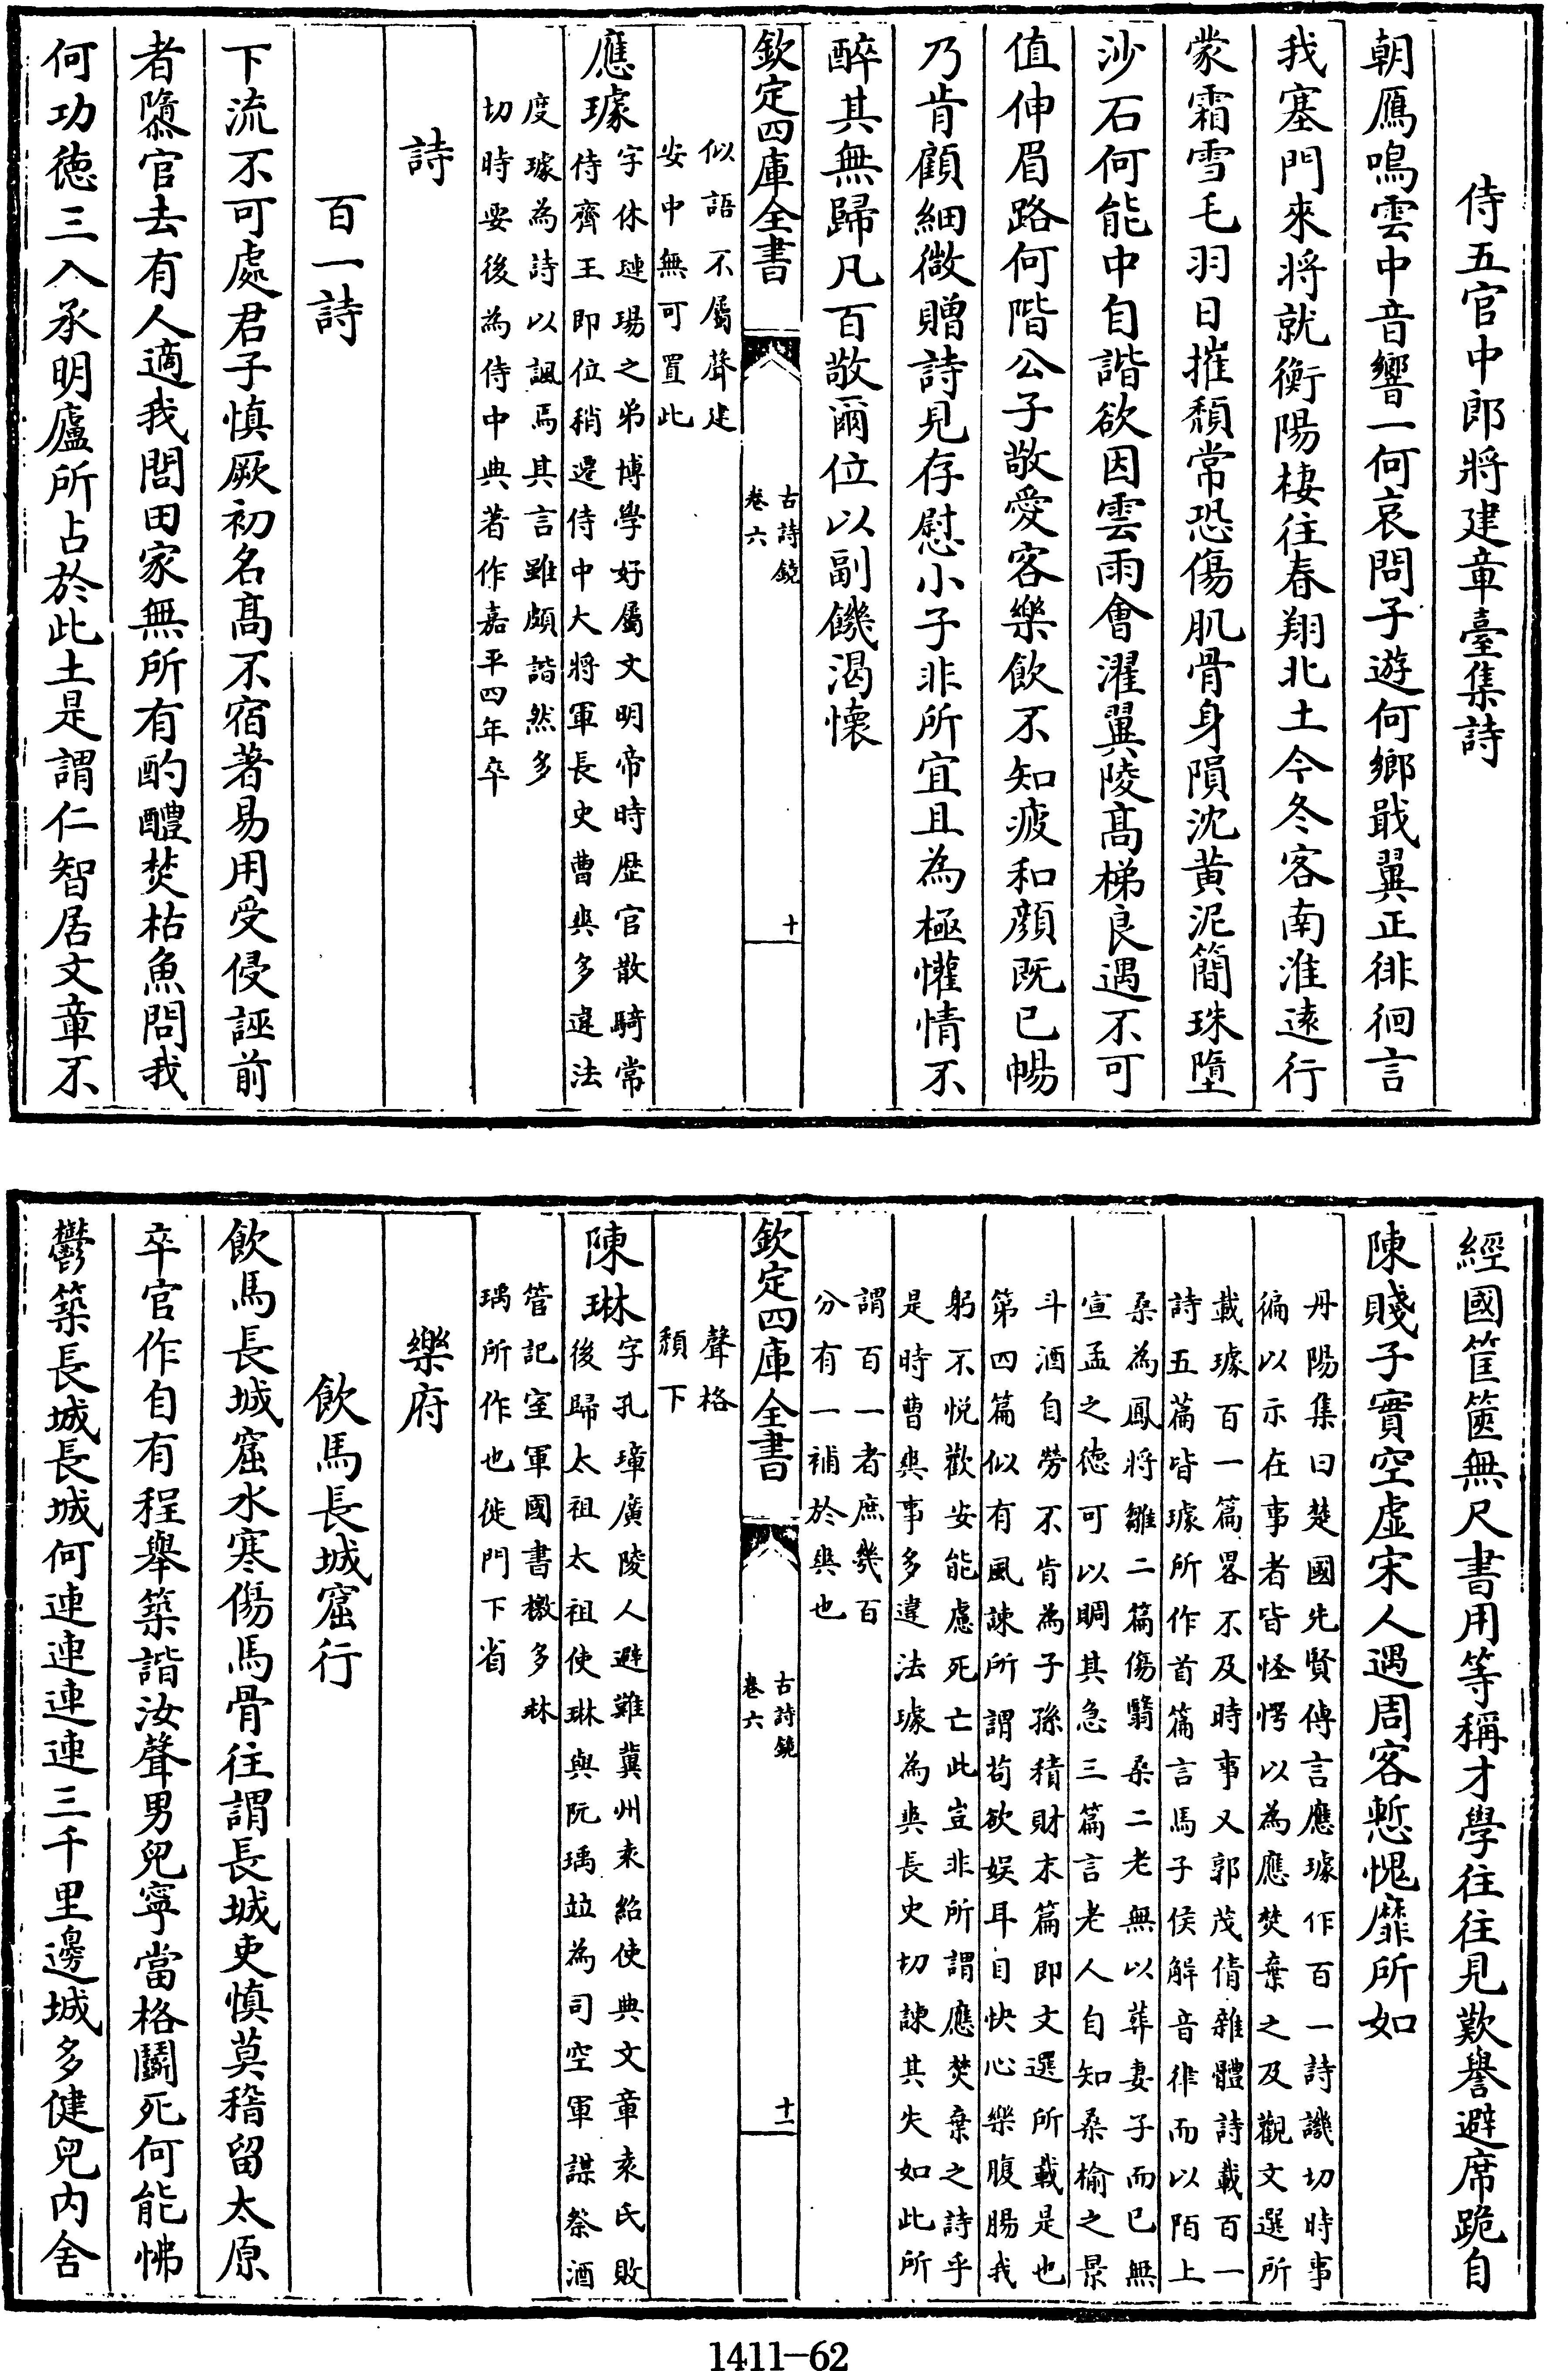 侍五官中郎將建章臺集詩
朝鴈鳴雲中音響一何哀問子遊何鄉戢翼正徘徊言
我塞門來將就衡陽棲往春翔北土今冬客南淮遠行
蒙霜雪毛羽日摧頽常恐傷肌骨身隕沈黄泥簡珠墮
沙石何能中自諧欲因雲雨會濯翼陵髙梯良遇不可
值伸眉路何階公子敬愛客樂飲不知疲和顔既已暢
乃肯顧細微贈詩見存慰小子非所宜且為極懽情不
醉其無歸凡百敬爾位以副饑渴懷
欽定四庫全書
古詩鏡
卷六
十
似語不屬聲建
安中無可置此
應璩
字休璉瑒之弟博學好屬文明帝時歴官散騎常
侍齊王即位稍遷侍中大將軍長史曹爽多違法
度璩為詩以諷焉其言雖頗諧然多
切時要後為侍中典著作嘉平四年卒
詩
百一詩
下流不可處君子慎厥初名髙不宿著易用受侵誣前
者隳官去有人適我閭田家無所有酌醴焚枯魚問我
何功徳三入承明廬所占於此土是謂仁智居文章不
經國筐篋無尺書用等稱才學往往見歎譽避席跪自
陳賤子實空虛宋人遇周客慙愧靡所如
丹陽集曰楚國先賢傳言應璩作百一詩譏切時事
徧以示在事者皆怪愕以為應焚棄之及觀文選所
載璩百一篇畧不及時事又郭茂倩雜體詩載百一
詩五篇皆璩所作首篇言馬子侯解音律而以陌上
桑為鳳將雛二篇傷翳桑二老無以葬妻子而已無
宣孟之徳可以賙其急三篇言老人自知桑榆之景
斗酒自勞不肯為子孫積財末篇即文選所載是也
第四篇似有風諫所謂苟欲娱耳目快心樂腹腸我
躬不悦歡安能慮死亡此豈非所謂應焚棄之詩乎
是時曹爽事多違法璩為爽長史切諫其失如此所
謂百一者庶幾百
分有一補於爽也
欽定四庫全書
古詩鏡
卷六
十一
聲格
頽下
陳琳
字孔璋廣陵人避難冀州袁紹使典文章袁氏敗
後歸太祖太祖使琳與阮瑀竝為司空軍謀祭酒
管記室軍國書檄多琳
瑀所作也徙門下省
樂府
飲馬長城窟行
飲馬長城窟水寒傷馬骨往謂長城吏慎莫稽留太原
卒官作自有程舉築諧汝聲男兒寧當格鬭死何能怫
鬱築長城長城何連連連連三千里邊城多健兒内舍
1411—62